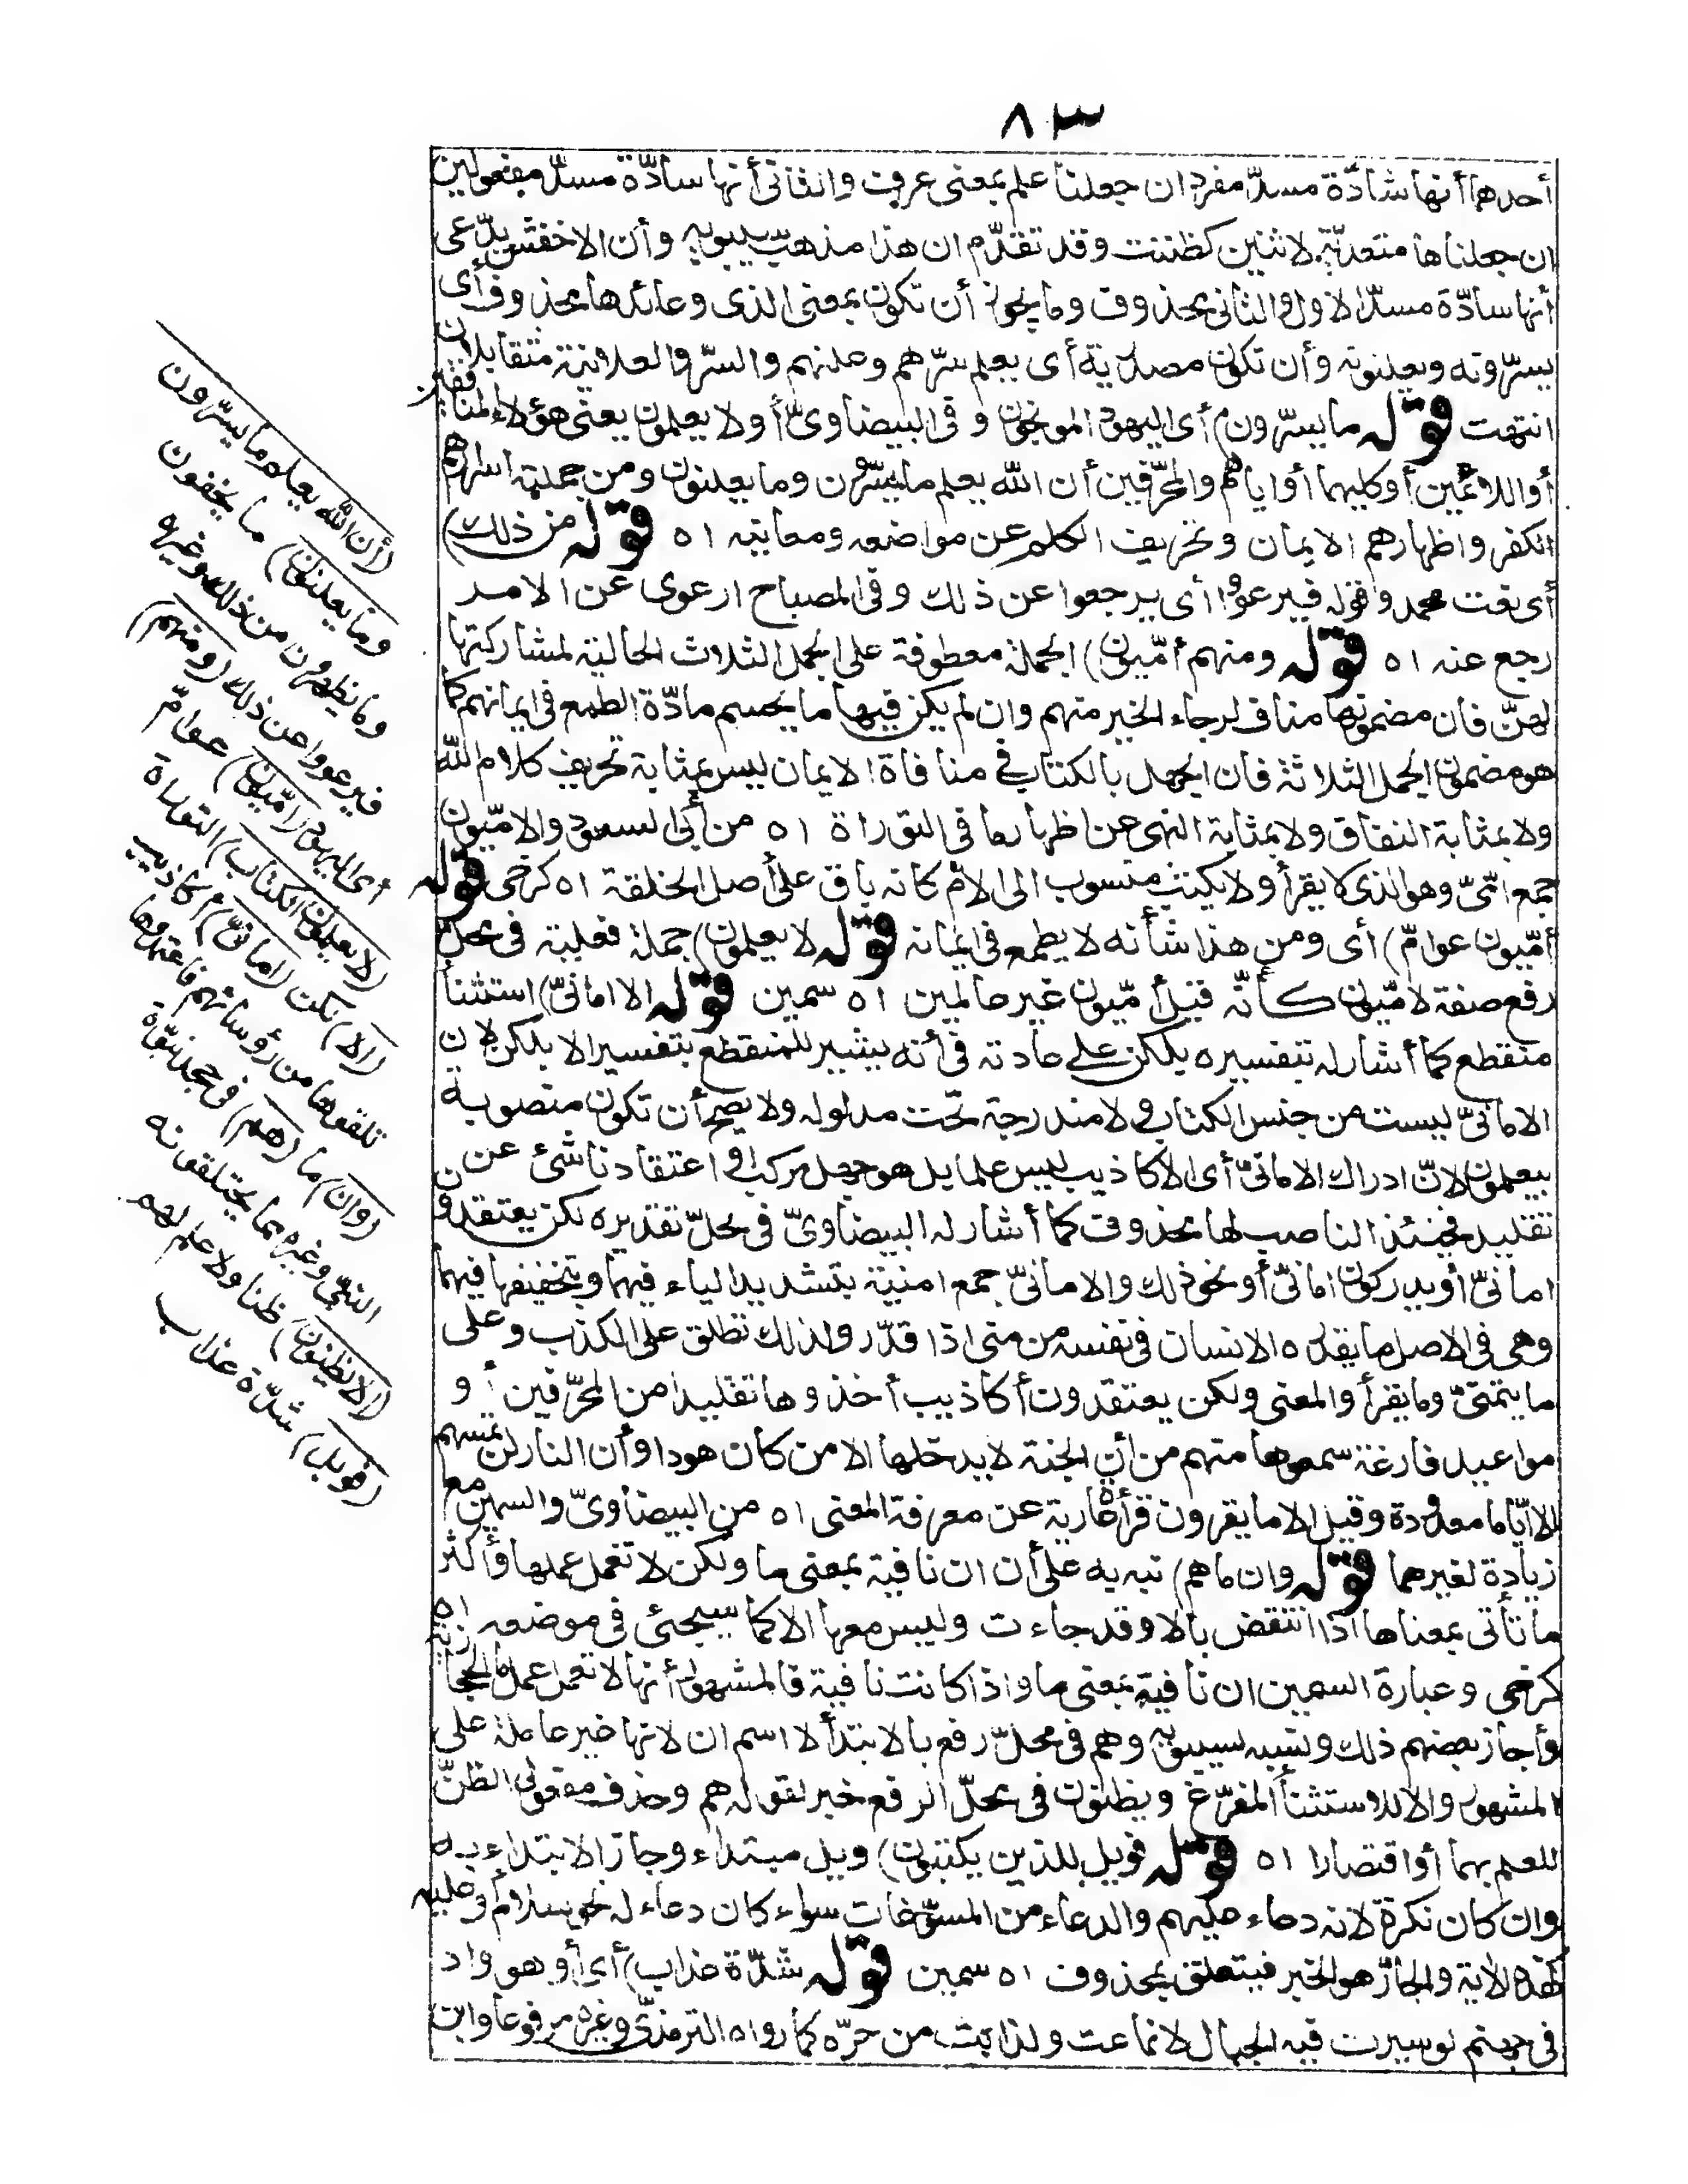 ٨٣
أحدهما أنها شادّة مسدّ مفرد ان جعلنا علم بمعنى عرف والثانى أنها سادّة مسدّ مفعولين
ان جعلناها متعدّية لاثنين كظننت وقد تقدّم ان هذا مذهب سيبويه وأن الاخفش يدّعى
أنها سادّة مسدّ الاول والثانى محذوف وما يجوز أن تكون بمعنى الذى وعائدها محذوف أى
يسرّونه ويعلنونه وأن تكون مصدرية أى يعلم سرّهم وعلنهم والسرّ والعلانية متقابلان
انتهت قوله ما يسرّون) أى اليهود الموبخون وفى البيضاوىّ أولا يعلمون يعنى هؤلاء المنافقين
أو اللائمين أو كليهما أو اياهم والمحرّفين أن الله يعلم ما يسرّون وما يعلنون ومن جملته اسرارهم
الكفر واظهارهم الايمان وتحريف الكلم عن مواضعه ومعانيه اه قوله من ذلك)
أى نعت محمد وقوله فيرعووا أى يرجعوا عن ذلك وفى المصباح ارعوى عن الامر
رجع عنه اه قوله ومنهم أمّيون) الجملة معطوفة على الجمل الثلاث الحالية لمشاركتها
لهنّ فان مضمونها مناف لرجاء الخير منهم وان لم يكن فيها ما يحسم مادّة الطمع فى ايمانهم كما
هو مضمون الجمل الثلاثة فان الجهل بالكتاب فى منافاة الايمان ليس بمثابة تحريف كلام الله
ولا بمثابة النفاق ولا بمثابة النهى عن اظهار ما فى التوراة اه من أبى السعود والامّيون
جمع امّىّ وهو الذى لا يقرأ ولا يكتب منسوب الى الامّ كانه باق على أصل الخلقة اه كرخى قوله
أمّيون عوامّ) أى ومن هذا شأنه لا يطمع فى ايمانه قوله لا يعلمون) جملة فعلية فى محلّ
رفع صفة لامّيون كأنّه قيل أمّيون غير عالمين اه سمين قوله الا امانىّ) استثنأ
منقطع كما أشار له بتفسيره بلكن على عادته فى أنه يشير للمنقطع بتفسير الا بلكن لان
الامانىّ ليست من جنس الكتاب ولا مندرجة تحت مدلوله ولا يصح أن تكون منصوبة
بيعلمون لانّ ادراك الامانىّ أى الاكاذيب ليس علما بل هو جهل مركب او اعتقاد ناشئ عن
تقليد فحينئذ الناصب لها محذوف كما أشار له البيضاوىّ فى محلّ تقديره لكن يعتقدون
امانىّ أو يدركون امانىّ أو نحو ذلك والامانىّ جمع امنية بتشديد الياء فيهما وبتخفيفها فيهما
وهى فى الاصل ما يقدّره الانسان فى نفسه من منى اذا قدّر ولذلك تطلق على الكذب وعلى
ما يتمنىّ وما يقرأ والمعنى ولكن يعتقدون أكاذيب أخذوها تقليدا من المحرّفين أو
مواعيد فارغة سمعوها منهم من أن الجنة لا يدخلها الا من كان هودا وأن النار لن تمسهم
الا ايّاما معدودة وقيل الا ما يقرون قرأة عارية عن معرفة المعنى اه من البيضاوىّ والسمين مع
زيادة لغيرهما قوله وان ما هم) نبه به على أن ان نافية بمعنى ما ولكن لا تعمل عملها وأكثر
ما تأتى بمعناها اذا انتقض بالا وقد جاءت وليس معها الا كما سيجئ فى موضعه اه
كرخى وعبارة السمين ان نافية بمعنى ما واذا كانت نافية فالمشهور أنها لا تعمل عمل ما الحجازية
وأجاز بعضهم ذلك ونسبه لسيبويه وهم فى محلّ رفع بالابتدأ لا اسم ان لانها غير عاملة على
المشهور والا للاستثنأ المفرّغ ويظنون فى محلّ الرفع خبر لقوله هم وحذف مفعولى الظنّ
للعلم بهما أو اقتصارا اه قوله فويل للذين يكتبون) ويل مبتداء وجاز الابتداء به
وان كان نكرة لانه دعاء عليهم والدعاء من المسوّغات سواء كان دعاء له نحو سلام أو عليه
كهذه الاية والجارّ هو الخبر فيتعلق بمحذوف اه سمين قوله شدّة عذاب) أى أو هو واد
فى جهنم لو سيرت فيه الجبال لانماعت ولذابت من حرّه كما رواه الترمذىّ وغيره مرفوعا وابن
(أن الله يعلم ما يسرّون
وما يعلنون) ما يخفون
وما يظهرون من ذلك وغيره
فيرعووا عن ذلك (ومنهم)
أى اليهود (امّيون) عوامّ
(لا يعلمون الكتاب) التوراة
(الا) لكن (امانىّ) أكاذيب
تلقوها من رؤسائهم فاعتمدوها
(وان) ما (هم) فى جحد نبوّة
النبىّ وغيره مما يختلقونه
(الا يظنون) ظنا ولا علم لهم
(فويل) شدّة عذاب